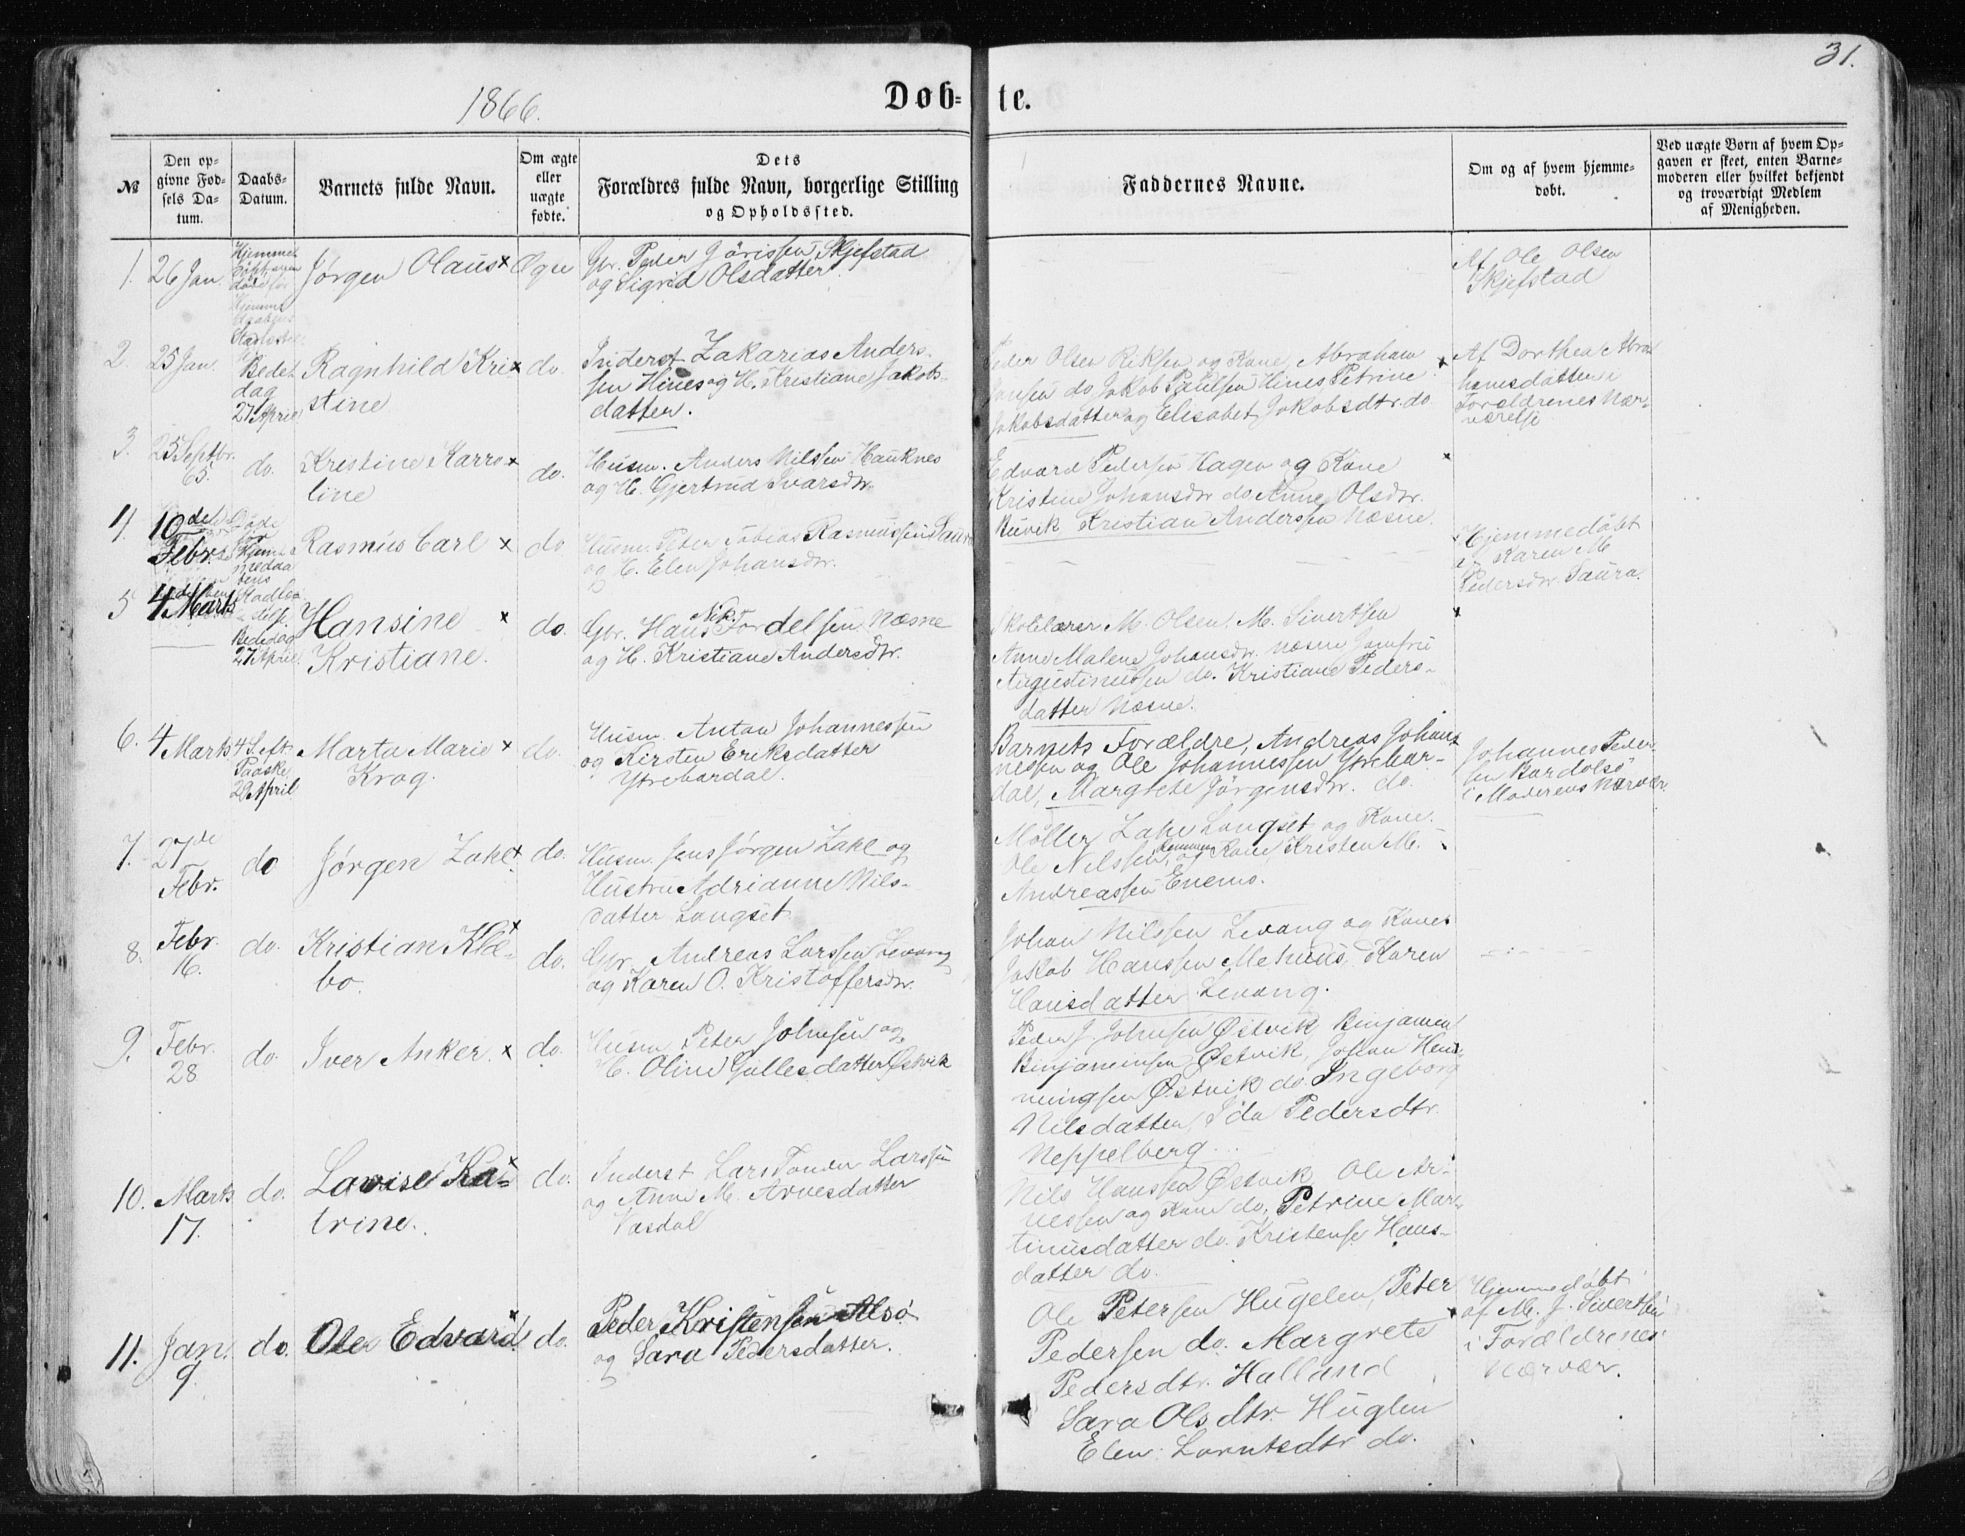 31.
1866.
Døb-
te.
№
Den op-
givne Fød-
sels Da-
tum.
Daabs-
Datum.
Barnets fulde Navn.
Om ægte
eller
uægte
fødte.
Dets
Forældres fulde Navn, borgerlige Stilling
og Opholdssted.
Faddernes Navne.
Om og af hvem hjemme-
døbt.
Ved uægte Børn af hvem Op-
gaven er skeet, enten Barne-
moderen eller hvilket bekjendt
og troværdigt Medlem
af Menigheden.
1.
26 Jan.
Jørgen Olaus x
Gbr. Peder Jörissen Skjefstad
og Sigrid Olsdatter.
Af Ole Olsen
Skjefstad
2.
25 Jan.
Bededag
27 April
Ragnhild Kri x
stine
do.
Inderst Zakarias Anders-
sen Hines og H. Kristiane Jakobs-
datter.
Peder Olsen og Kone, Abraham x
Jansen do. Jakob Paulsen Hines Petrine
Jakobsdatter og Elisabet Jakobsdtr. do.
Af Dorthea Abra-
hamsdatter i
Forældrenes Nær-
værelse
3.
25 Septbr.
65.
do.
Kristine Karro x
line
do.
Husm. Anders Nilsen Hauknes
og H. Gjertrud Ivarsdtr.
Edvard Pedersen Hagen og Kone x
Kristine Johansdtr do. Anne Olsdtr.
Buvik Kristian Andersen Næsne.
4.
10de
Febr.
Rasmus Carl x
do.
Husm. Peter Tobias Rasmussen
og H. Elen Johansdtr.
Hjemmedøbt
af Karen M.
Pedersdtr. Saura.
5
4 Marts
Bededag
27 April
Hansine x
Kristiane.
do.
Gbr. Hans Nik. Fordelsen Næsne
og H. Kristiane Andersdtr.
Skolelærer M. Olsen, M. Sivertsen x
Anne Malene Johansdtr. Næsne Jomfru
Augustinussen do. Kristiane Peders-
datter Næsne.
6.
4 Marts
4 S. eft.
Paaske
29 April
Marta Marie x
Krog.
do.
Husm. Anton Johannessen
og Kirsten Eriksdatter
Ytrebardal.
Barnets Forældre, Andreas Johan-
nessen og Ole Johannessen Ytrebar-
dal, Margrete Jørgensdtr. do.
Johannes Peder-
sen Bardalsö
i Moderens Nærvær
7.
27de
Febr.
do
Jørgen Zahl x
do.
Husm. Jens Jørgen Zahl og
Hustru Adrianne Nils-
datter Langset.
Møller Zahl Langset og Kone.
Ole Nilssen, og Kone Kristen M.
Andreassen Enemo.
8.
Febr.
16.
do.
Kristian Klæ- x
bo.
do.
Gbr. Andreas Larssen Levang
og Karen O. Kristoffersdtr.
Johan Nilssen Levang og Kone
Jakob Hanssen Mehuus Karen
Hansdatter Levang.
9.
Febr.
28
do.
Iver Anker. x
do.
Husm. Peter Johnsen og
H. Oline Gullesdatter Østvik
Peder J. Johnsen Østvik Binjamen
Binjaminsen Østvik, Johan Hen-
ningsen Østvik do. Ingeborg
Nilsdatter, Ida Pedersdtr.
Neppelberg
10.
Marts
17.
do.
Lovise Ka- x
trine.
do.
Inderst Lars Tønder Larssen
og Anne M. Arnesdatter
Vasdal
Nils Hanssen Østvik Ole Ar-
nessen og Kone do. Petrine Mar-
tinusdatter do. Kristense Hans-
datter do.
11.
Jan.
9.
do.
Ole Edvard x
do.
Peder Kristensen Alsø
og Sara Pedersdatter.
Ole Petersen Hugelen, Peter
Pedersen do. Margrete x
Pedersdtr. Halland
Sara Olsdtr. Huglen
Elen Lorntsdtr do.
Hjemmedøbt
af M. J. Sivertsen
i Forældrenes
Nærvær.